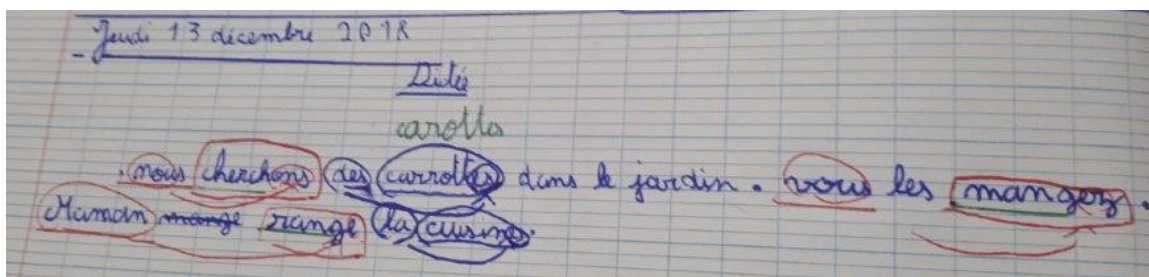 Jeudi 13 décembre 2018
Dictée
carottes
nous cherchons des carrottes dans le jardin. vous les mangez.
Maman mange range la cuisine.